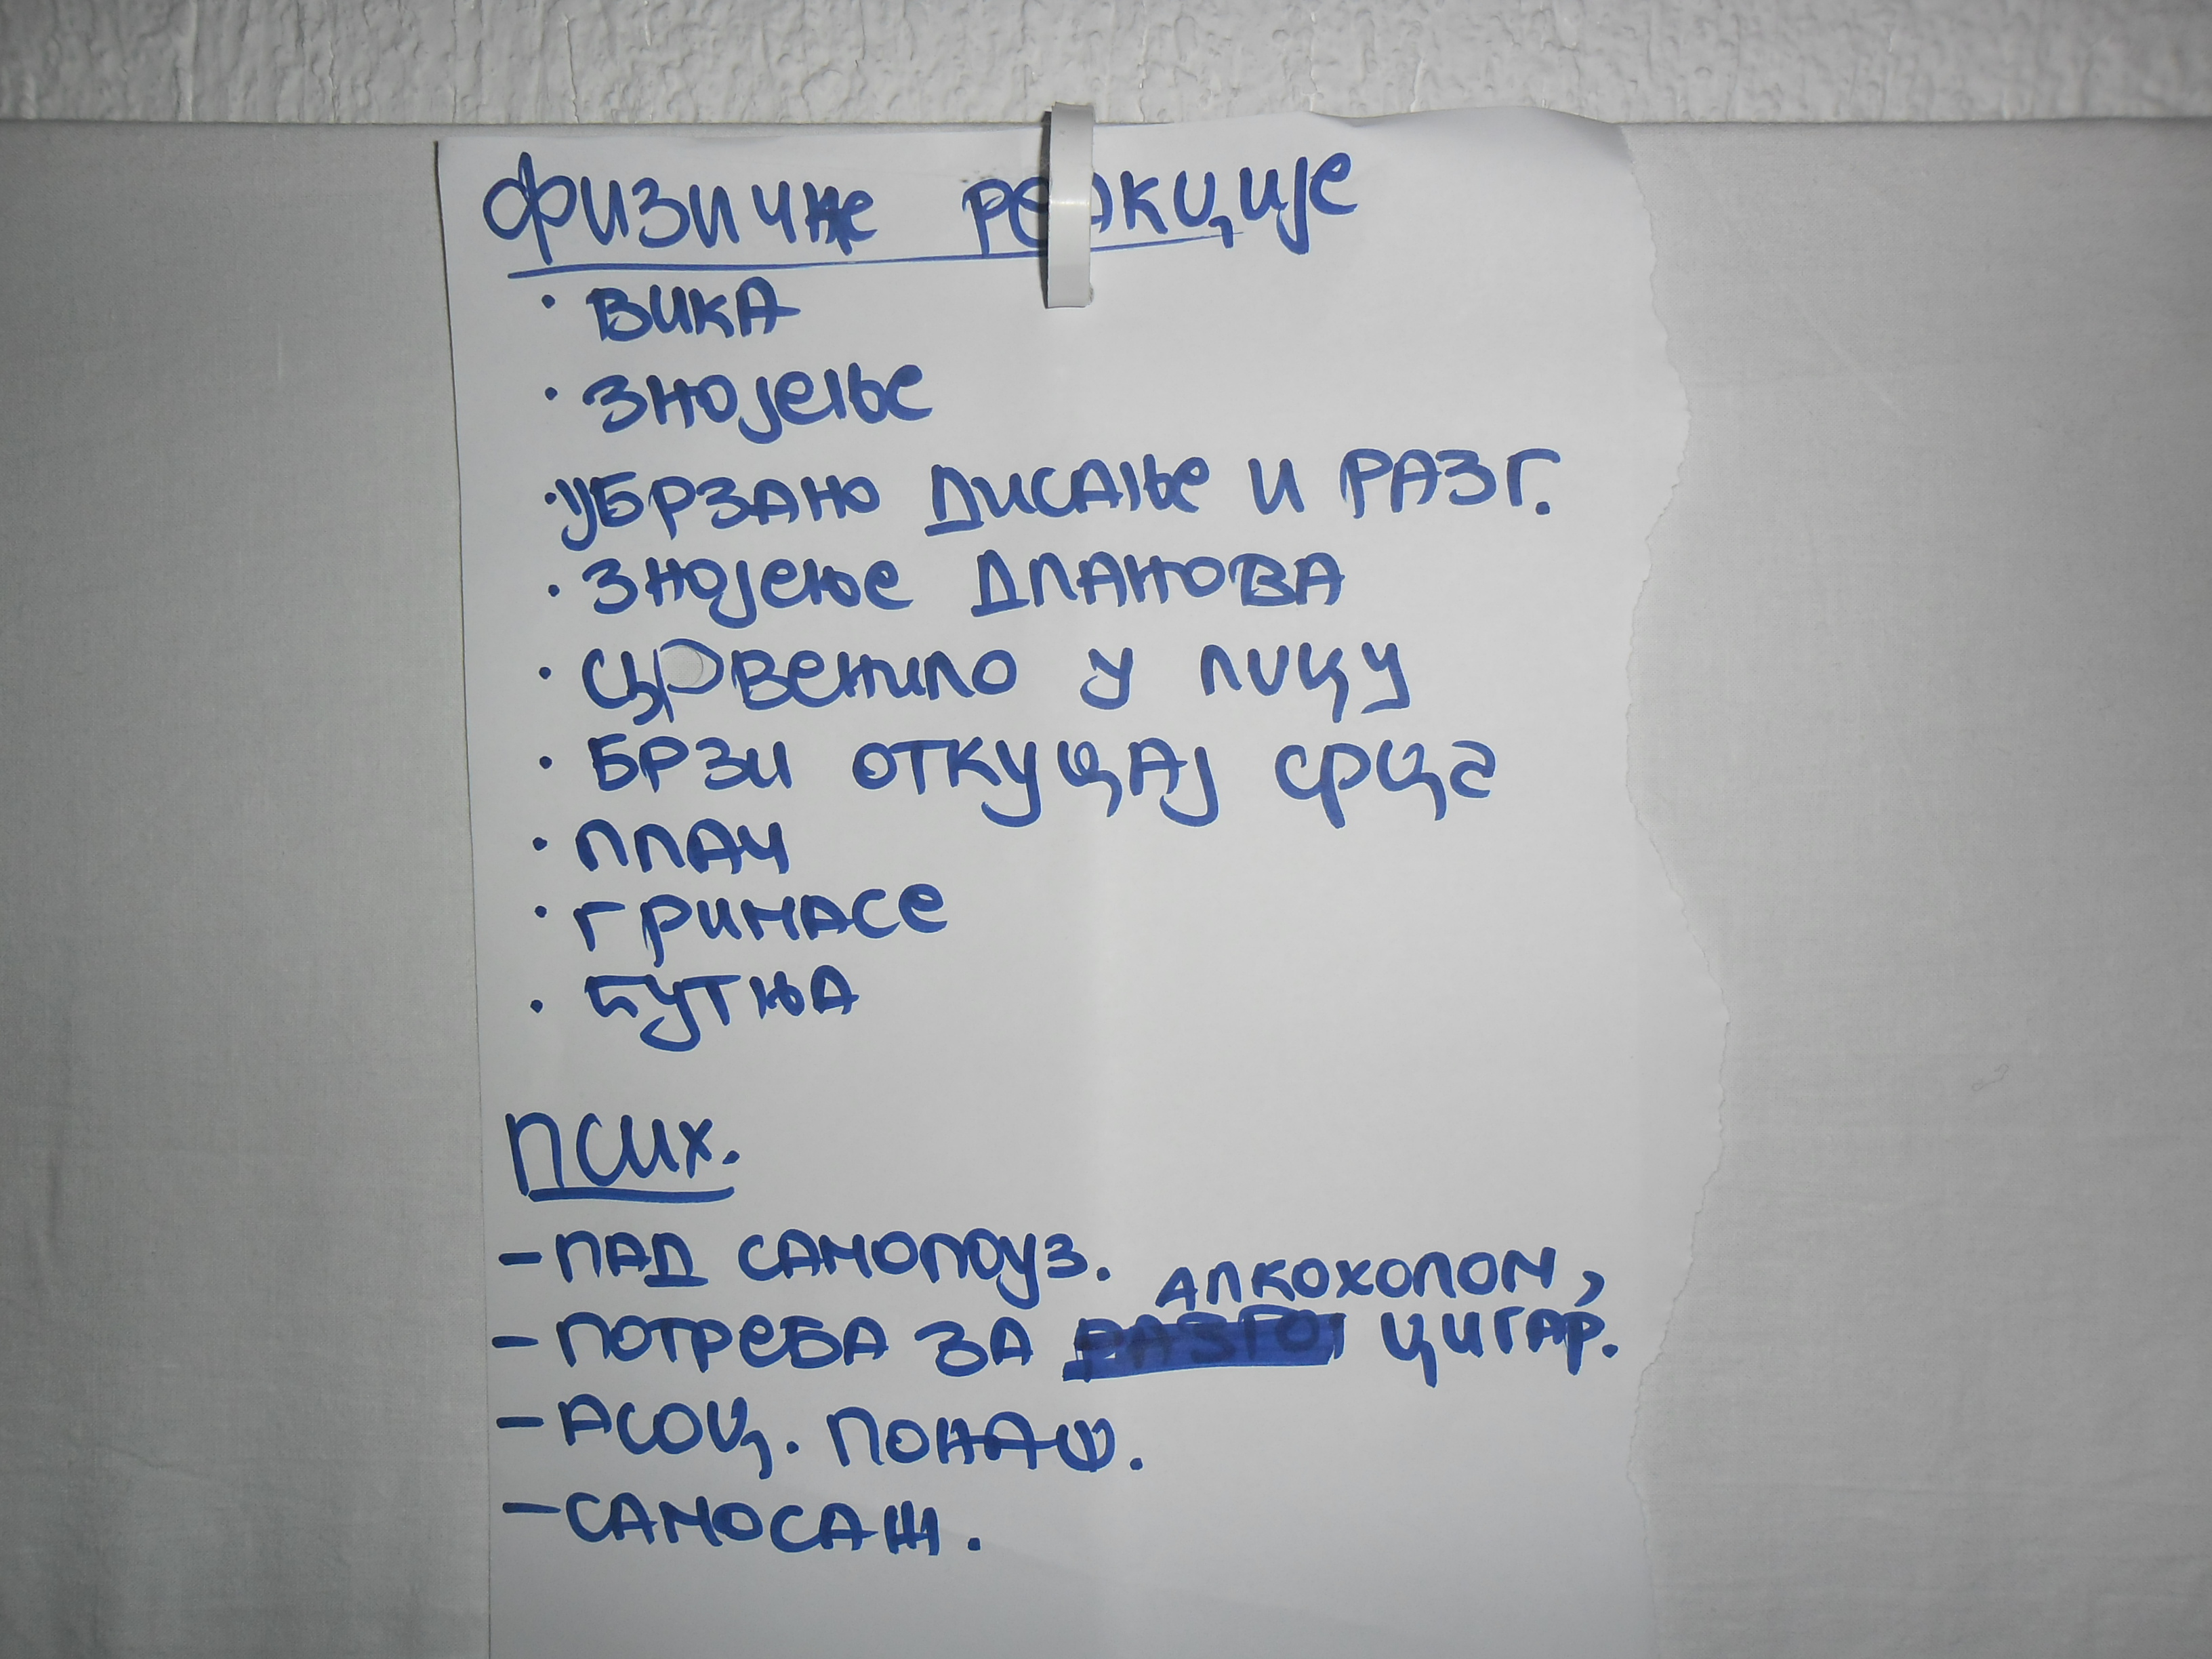 ФИЗИЧНЕ РЕАКЦИЈЕ
· ВИКА
· ЗНОЈЕЊЕ
· УБРЗАНО ДИСАЊЕ И РАЗГ.
· ЗНОЈЕЊЕ ДЛАНОВА
· ЦРВЕНИЛО У ЛИЦУ
· БРЗИ ОТКУЦАЈ СРЦА
· ПЛАЧ
· ГРИМАСЕ
· ЋУТЊА
ПСИХ.
– ПАД САМОПОУЗ.
АЛКОХОЛОМ,
– ПОТРЕБА ЗА ЦИГАР.
– АСОЦ. ПОНАШ.
– САМОСАЖ.